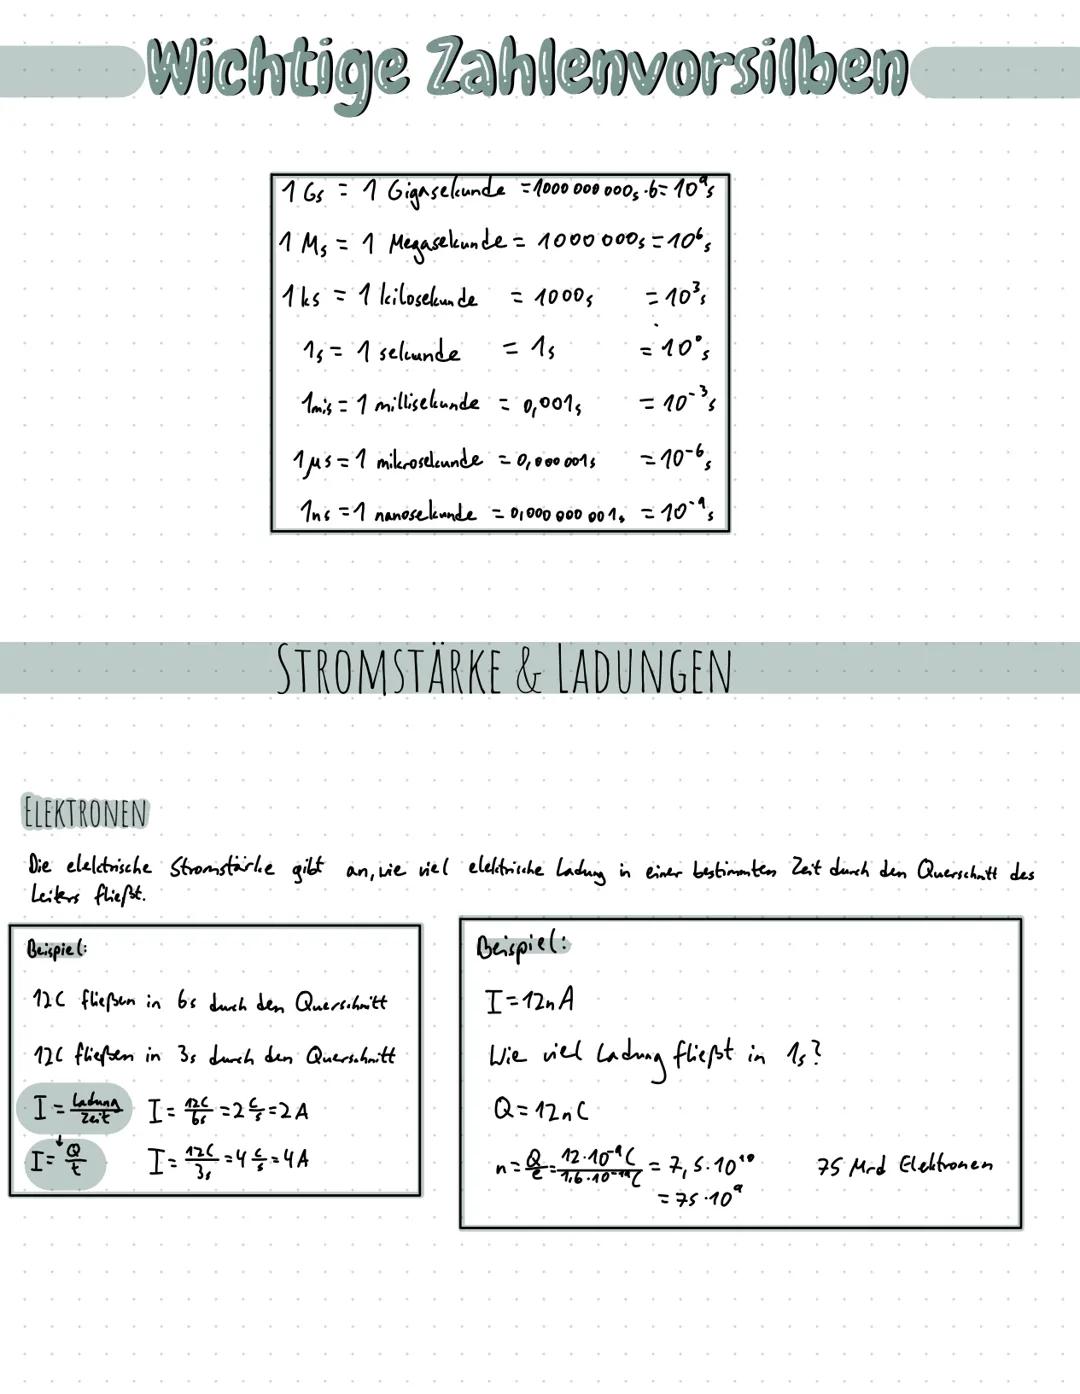 Wichtige Zahlenvorsilben
1 Gs = 1 Gigasekunde = 1000 000 000s ·6= 10⁹s
1 Ms = 1 Megasekunde = 1000 000s = 10⁶s
1 ks = 1 kilosekunde = 1000s = 10³s
1s = 1 sekunde = 1s = 10⁰s
1ms = 1 millisekunde = 0,001s = 10⁻³s
1 µs = 1 mikrosekunde = 0,000 001s = 10⁻⁶s
1ns = 1 nanosekunde = 0,000 000 001s = 10⁻⁹s
STROMSTÄRKE & LADUNGEN
ELEKTRONEN
Die elektrische Stromstärke gibt an, wie viel elektrische Ladung in einer bestimmten Zeit durch den Querschnitt des
Leiters fließt.
Beispiel:
12C fließen in 6s durch den Querschnitt
12C fließen in 3s durch den Querschnitt
I = Ladung/Zeit I = 12C/6s = 2 C/s = 2A
I = Q/t I = 12C/3s = 4 C/s = 4A
Beispiel:
I = 12nA
Wie viel Ladung fließt in 1s?
Q = 12nC
n = Q/e = 12·10⁻⁹C/1,6·10⁻¹⁹C = 7,5·10¹⁰ 75 Mrd Elektronen
= 75·10⁹